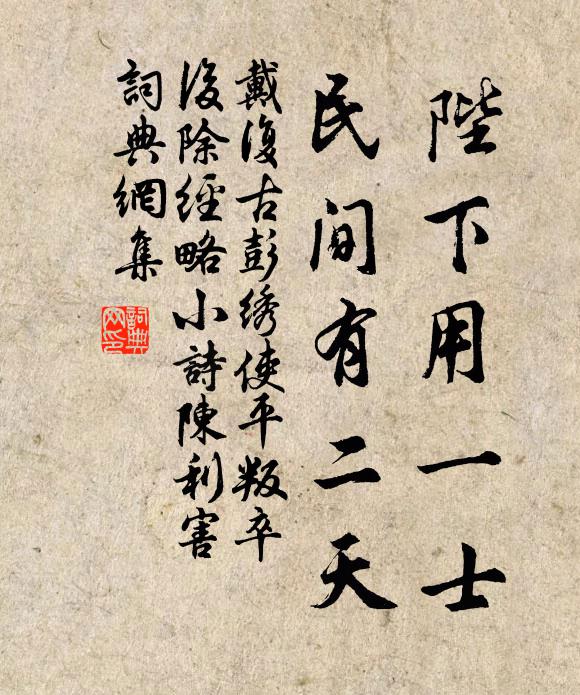 陛下用一士
民间有二天
戴復古彭綉使平叛卒
後除經略小詩陳利害
詞典網集
詞典
网印